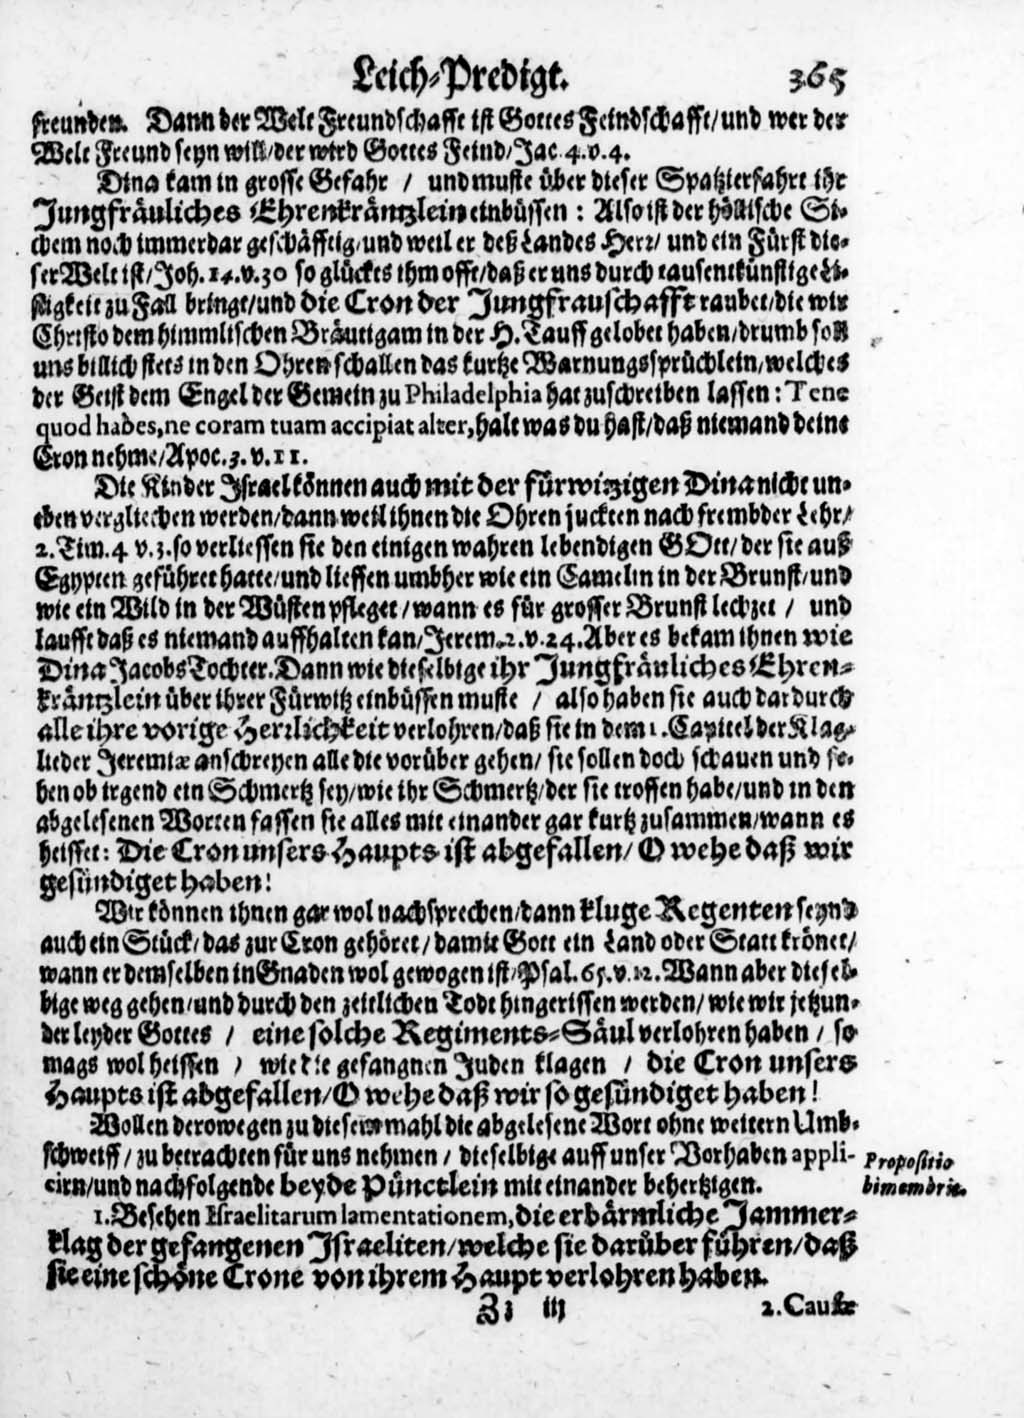 Leich-Predigt. 365
freunden. Dann der Welt Freundschafft ist Gottes Feindschafft/und wer der
Welt Freund seyn will/der wird Gottes Feind/Jac. 4.v.4.
Dina kam in grosse Gefahr / und muste über dieser Spatzierfahrt ihr
Jungfräuliches Ehrenkräntzlein einbüssen : Also ist der höllische Si-
chem noch immerdar geschäfftig/und weil er deß Landes Herr/ und ein Fürst die-
ser Welt ist/Joh. 14.v.30 so glückts ihm offt/daß er uns durch tausentkünstige Li-
stigkeit zu Fall bringt/und die Cron der Jungfrauschafft raubet/die wir
Christo dem himmlischen Bräutigam in der H. Tauff gelobet haben/drumb soll
uns billich stets in den Ohren schallen das kurtze Warnungssprüchlein/welches
der Geist dem Engel der Gemein zu Philadelphia hat zuschreiben lassen : Tene
quod habes, ne coram tuam accipiat alter, halt was du hast/daß niemand deine
Cron nehme/Apoc. 3. v. 11.
Die Kinder Israel können auch mit der fürwitzigen Dina nicht un-
eben vergliechen werden/dann weil ihnen die Ohren juckten nach frembder Lehr/
2. Tim. 4 v. 3. so verliessen sie den einigen wahren lebendigen GOtt/ der sie auß
Egypten geführet hatte/und lieffen umbher wie ein Camelin in der Brunst/und
wie ein Wild in der Wüsten pfleget/wann es für grosser Brunst lechzet / und
laufft daß es niemand auffhalten kan/Jerem. 2. v. 24. Aber es bekam ihnen wie
Dina Jacobs Tochter. Dann wie dieselbige ihr Jungfräuliches Ehren-
kräntzlein über ihrer Fürwitz einbüssen muste / also haben sie auch dardurch
alle ihre vorige Herrlichkeit verlohren/daß sie in dem 1. Capitel der Klag-
lieder Jeremiæ anschreyen alle die vorüber gehen/ sie sollen doch schauen und se-
hen ob irgend ein Schmertz sey/wie ihr Schmertz/der sie troffen habe/und in den
abgelesenen Worten fassen sie alles mit einander gar kurtz zusammen/wann es
heisset: Die Cron unsers Haupts ist abgefallen/ O wehe daß wir
gesündiget haben!
Wir können ihnen gar wol nachsprechen/dann kluge Regenten seynd
auch ein Stück/das zur Cron gehöret/ damit Gott ein Land oder Statt krönet/
wann er demselben in Gnaden wol gewogen ist/Psal. 65. v. 12. Wann aber diesel-
bige weg gehen/und durch den zeitlichen Todt hingerissen werden/ wie wir jetzun-
der leyder Gottes / eine solche Regiments-Säul verlohren haben / so
mags wol heissen / wie die gefangnen Juden klagen / die Cron unsers
Haupts ist abgefallen/O wehe daß wir so gesündiget haben!
Wollen derowegen zu diesem mahl die abgelesene Wort ohne weitern Umb-
schweiff/ zu betrachten für uns nehmen / dieselbige auff unser Vorhaben appli-
cirn/und nachfolgende beyde Pünctlein mit einander behertzigen.
Propositio
bimembris.
1. Besehen Israelitarum lamentationem, die erbärmliche Jammer-
klag der gefangenen Israeliten/welche sie darüber führen/daß
sie eine schöne Crone von ihrem Haupt verlohren haben.
Zz iij 2. Causæ